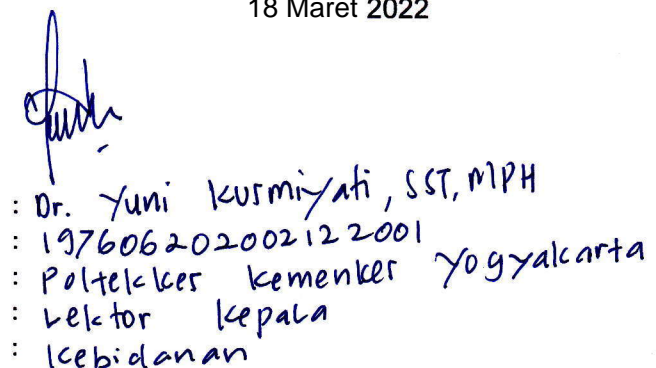 18 Maret 2022
: Dr. Yuni Kusmiyati, SST, MPH
: 197606202002122001
: Poltekkes Kemenkes Yogyakarta
: Lektor Kepala
: Kebidanan